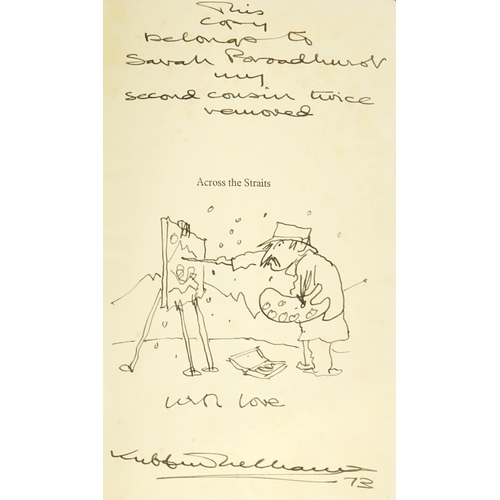 This
copy
belongs to
Sarah Broadhurst
my
second cousin twice
removed
Across the Straits
with love
Kyffin Williams
73